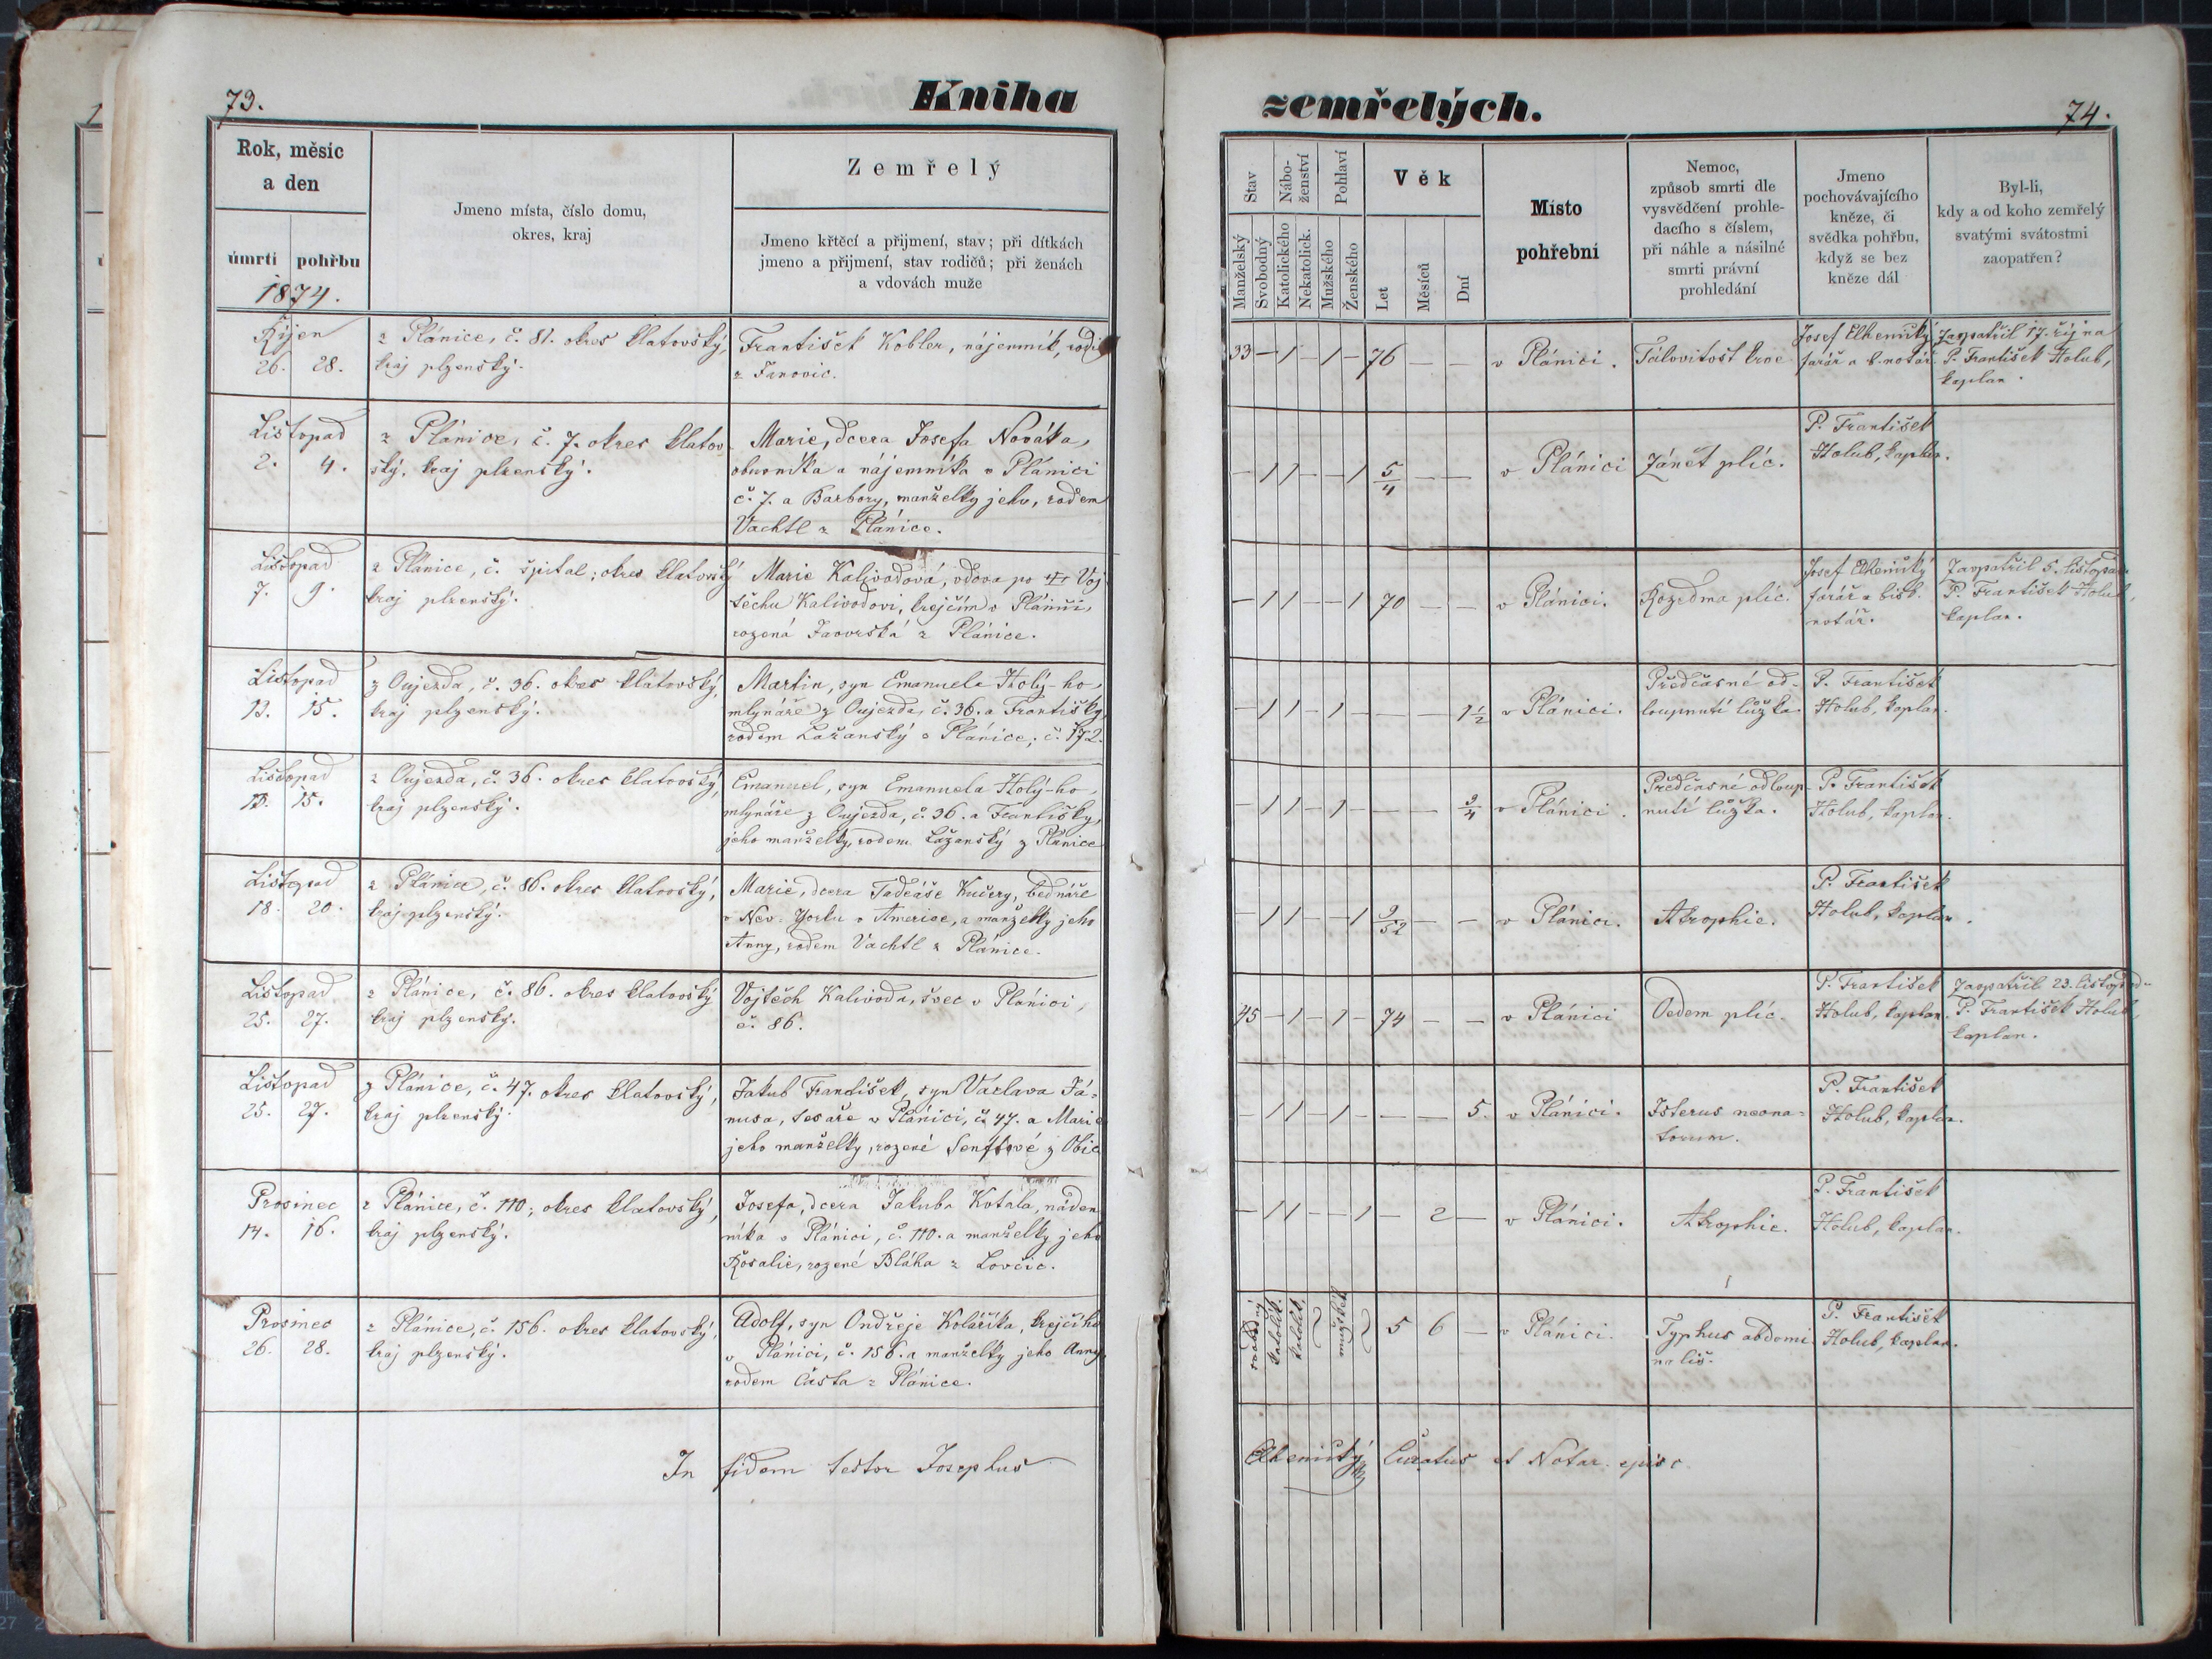 73.
Kniha
Rok, měsíc
a den
úmrtí
pohřbu
1874.
Jmeno místa, číslo domu,
okres, kraj
Zemřelý
Jmeno křtěcí a přijmení, stav; při dítkách
jmeno a přijmení, stav rodičů; při ženách
a vdovách muže
Říjen
26. 28.
z Plánice, č. 81. okres klatovský,
kraj plzenský.
František Kobler, nájemník, rodi
z Janovic.
Listopad
2. 4.
z Plánice, č. 7. okres klatov
ský, kraj plzenský.
Marie, dcera Josefa Nováka,
obuvníka a nájemníka v Plánici
č. 7. a Barbory, manželky jeho, rodem
Vachtl z Plánice.
Listopad
7. 9.
z Plánice, č. špital; okres klatovský
kraj plzenský.
Marie Kalivodová, vdova po Voj
těchu Kalivodovi, krejčím v Plánici,
rozená Javorská z Plánice.
Listopad
13. 15.
z Oujezda, č. 36. okres klatovský,
kraj plzenský.
Martin, syn Emanuela Holý-ho,
mlynáře z Oujezda, č. 36. a Františky,
rodem Lažanský z Plánice, č. 172.
Listopad
13. 15.
z Oujezda, č. 36. okres klatovský,
kraj plzenský.
Emanuel, syn Emanuela Holý-ho,
mlynáře z Oujezda, č. 36. a Františky,
jeho manželky, rodem Lažanský z Plánice
Listopad
18. 20.
z Plánice, č. 86. okres klatovský,
kraj plzenský.
Marie, dcera Tadeáše Kučery, bednáře
v Nev-Yorku v Americe, a manželky jeho
Anny, rodem Vachtl z Plánice.
Listopad
25. 27.
z Plánice, č. 86. okres klatovský
kraj plzenský.
Vojtěch Kalivoda, švec v Plánici,
č. 86.
Listopad
25. 27.
z Plánice, č. 47. okres klatovský,
kraj plzenský.
Jakub František, syn Václava Já-
nusa, tesaře v Plánici, č. 47. a Marie
jeho manželky, rozené Senftové z
Prosinec
14. 16.
z Plánice, č. 110; okres klatovský,
kraj plzenský.
Josefa, dcera Jakuba Kotala, náden
níka v Plánici, č. 110. a manželky jeho
Rosalie, rozené Bláha z Lovčic.
Prosinec
26. 28.
z Plánice, č. 156. okres klatovský,
kraj plzenský.
Adolf, syn Ondřeje Koláříka, krejčího
v Plánici, č. 156. a manželky jeho Anny,
rodem Částa z Plánice.
In fidem testor Josephus
zemřelých.
74.
Stav
Nábo-
ženství
Pohlaví
Věk
Manželský
Svobodný
Katolického
Nekatolick.
Mužského
Ženského
Let
Měsíců
Dní
Místo
pohřební
Nemoc,
způsob smrti dle
vysvědčení prohle-
dacího s číslem,
při náhle a násilné
smrti právní
prohledání
Jmeno
pochovávajícího
kněze, či
svědka pohřbu,
když se bez
kněze dál
Byl-li,
kdy a od koho zemřelý
svatými svátostmi
zaopatřen?
33 – 1 – 1 – 76 – – v Plánici.
Jílovitost krve
Josef Elhenický
farář a b. notář.
Zaopatřil 17. října
P. František Holub,
kaplan.
– 1 1 – – 1 5/4 – – v Plánici
Zánět plíc.
P. František
Holub, kaplan.
– 1 1 – – 1 70 – – v Plánici.
Rozedma plíc.
Josef Elhenický
farář a bisk.
notář.
Zaopatřil 5. listopadu
P. František Holub,
kaplan.
– 1 1 – 1 – – – 1 1/2 v Plánici.
Předčasné od-
loupnutí lůžka.
P. František
Holub, kaplan.
– 1 1 – 1 – – – 3/4 v Plánici.
Předčasné odloup
nutí lůžka.
P. František
Holub, kaplan.
– 1 1 – – 1 9/52 – – v Plánici.
Atrophie.
P. František
Holub, kaplan.
45 – 1 – 1 – 74 – – v Plánici
Oedem plíc.
P. František
Holub, kaplan.
Zaopatřil 23. listopad-
P. František Holub,
kaplan.
– 1 1 – 1 – – – 5. v Plánici.
Icterus neona-
torum.
P. František
Holub, kaplan.
– 1 1 – – 1 – 2 – v Plánici.
Atrophie.
P. František
Holub, kaplan.
svobodný katolík. katolick. mužské 5 6 – v Plánici.
Typhus abdomi
nalis.
P. František
Holub, kaplan.
Elhenický Curatus et Notar. episc.